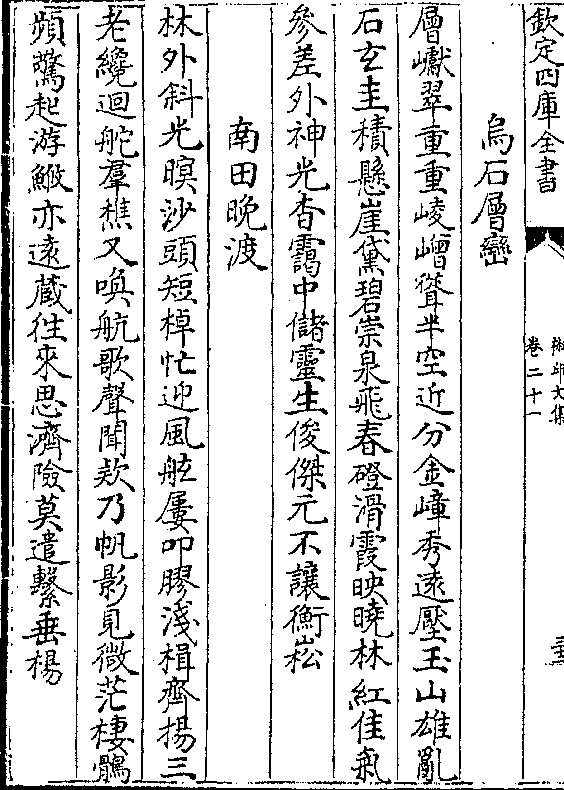 欽定四庫全書
卷二十一
烏石層巒
層巘翠重重崚嶒聳半空近分金嶂秀遠壓玉山雄亂
石玄圭積懸崖黛碧崇泉飛春磴滑霞映曉林紅佳氣
參差外神光杳靄中儲靈生俊傑元不讓衡崧
南田晚渡
林外斜光暝沙頭短棹忙迎風舷屢叩膠淺楫齊揚三
老纔迴舵羣樵又喚航歌聲聞欸乃帆影見微茫棲鶻
頻驚起游鯈亦遠藏往來思濟險莫遣繫垂楊